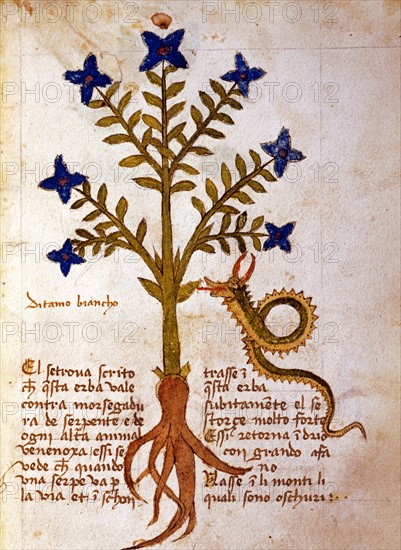 ditamo biancho
El setroua scrito
ch qsta erba uale
contra morsegadu
ra de serpente e de
ogni altra animal
uenenoxa essi se
uede ch quando
una serpe ua p
la uia et
trasse
qsta erba
subitamēte el se
storce molto forte
retorna
con grando afa
no
li monti li
quali sono oschuri
PHOTO12